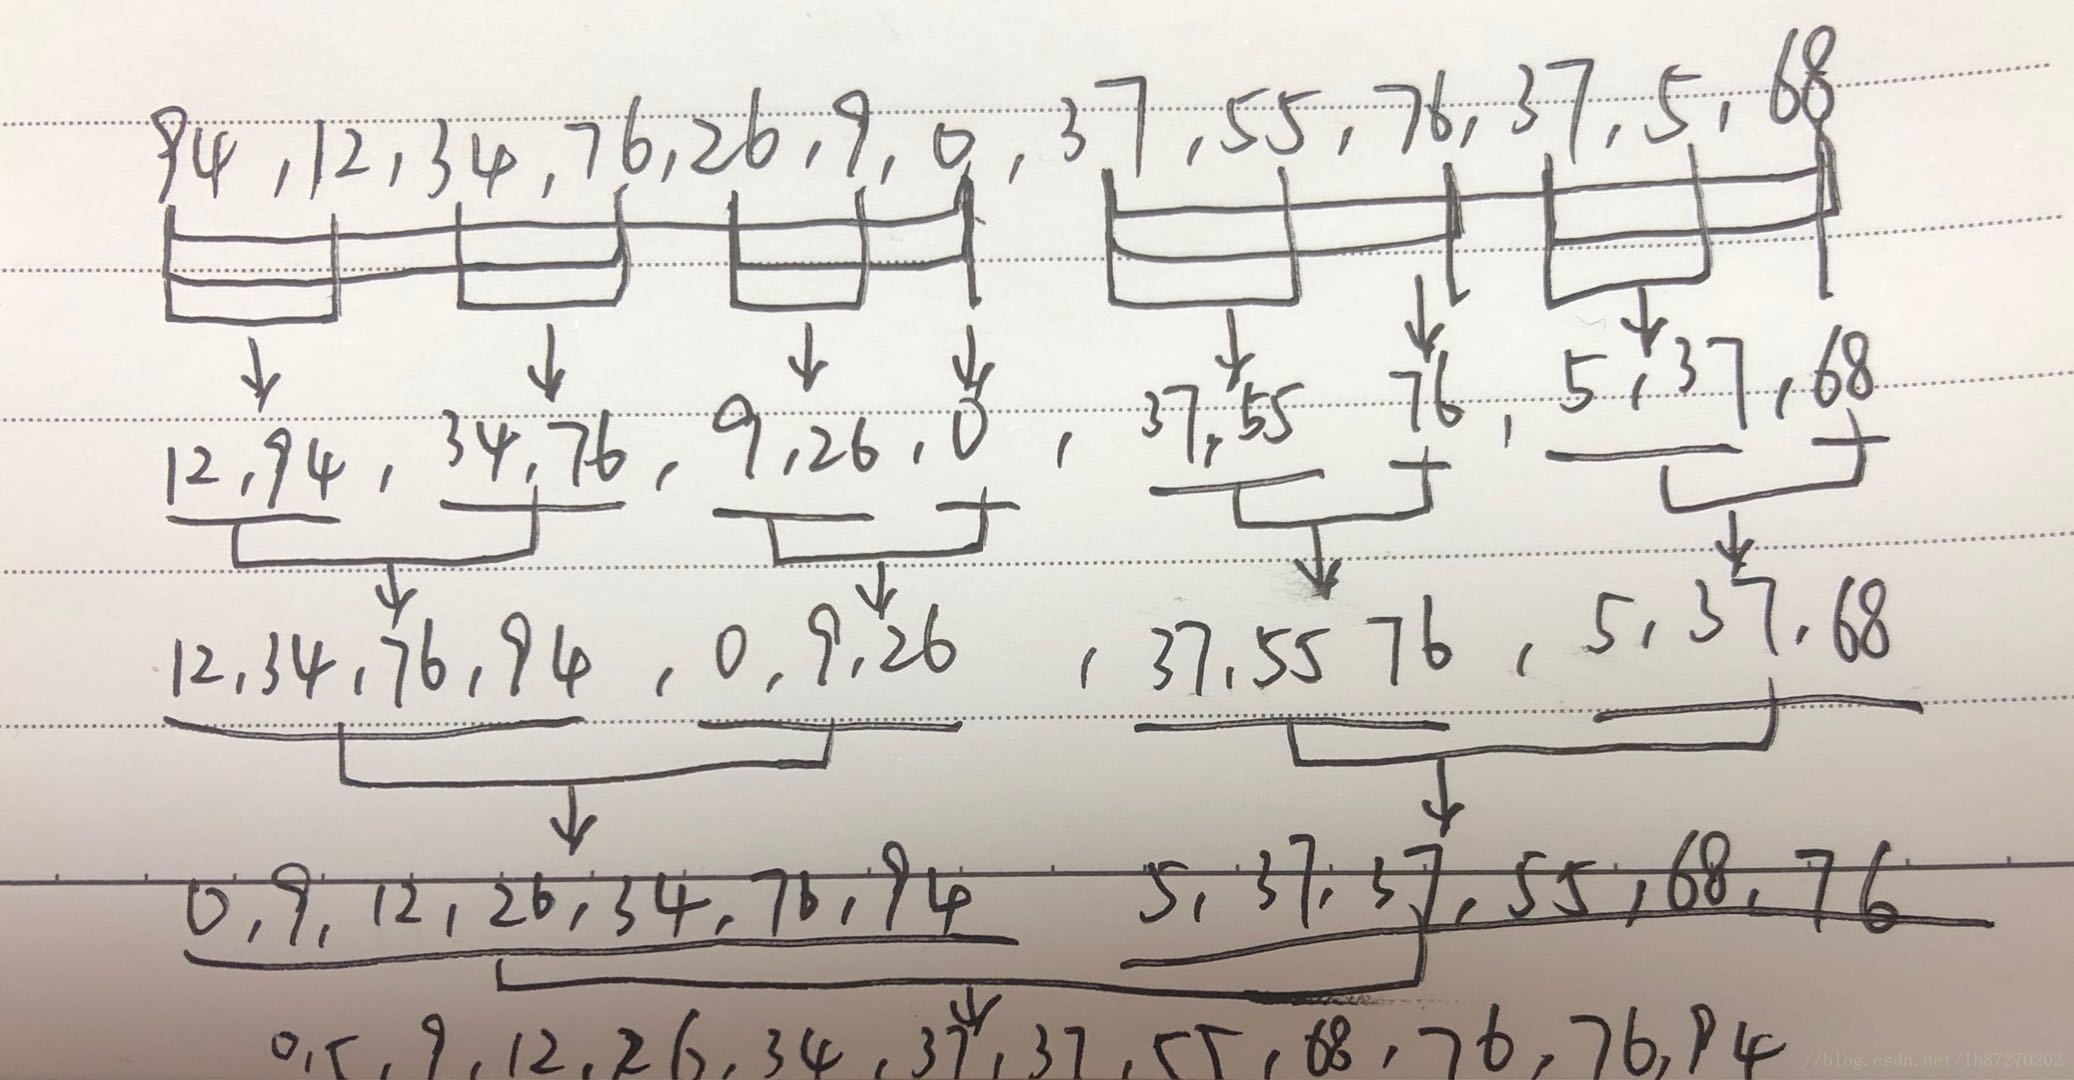 94,12,34,76,26,9,0,37,55,76,37,5,68
12,94,34,76,9,26,0,37,55 76,5,37,68
12,34,76,94,0,9,26,37,55 76,5,37,68
0,9,12,26,34,76,94 5,37,37,55,68,76
0,5,9,12,26,34,37,37,55,68,76,76,94
//blog.csdn.net/lh87270202